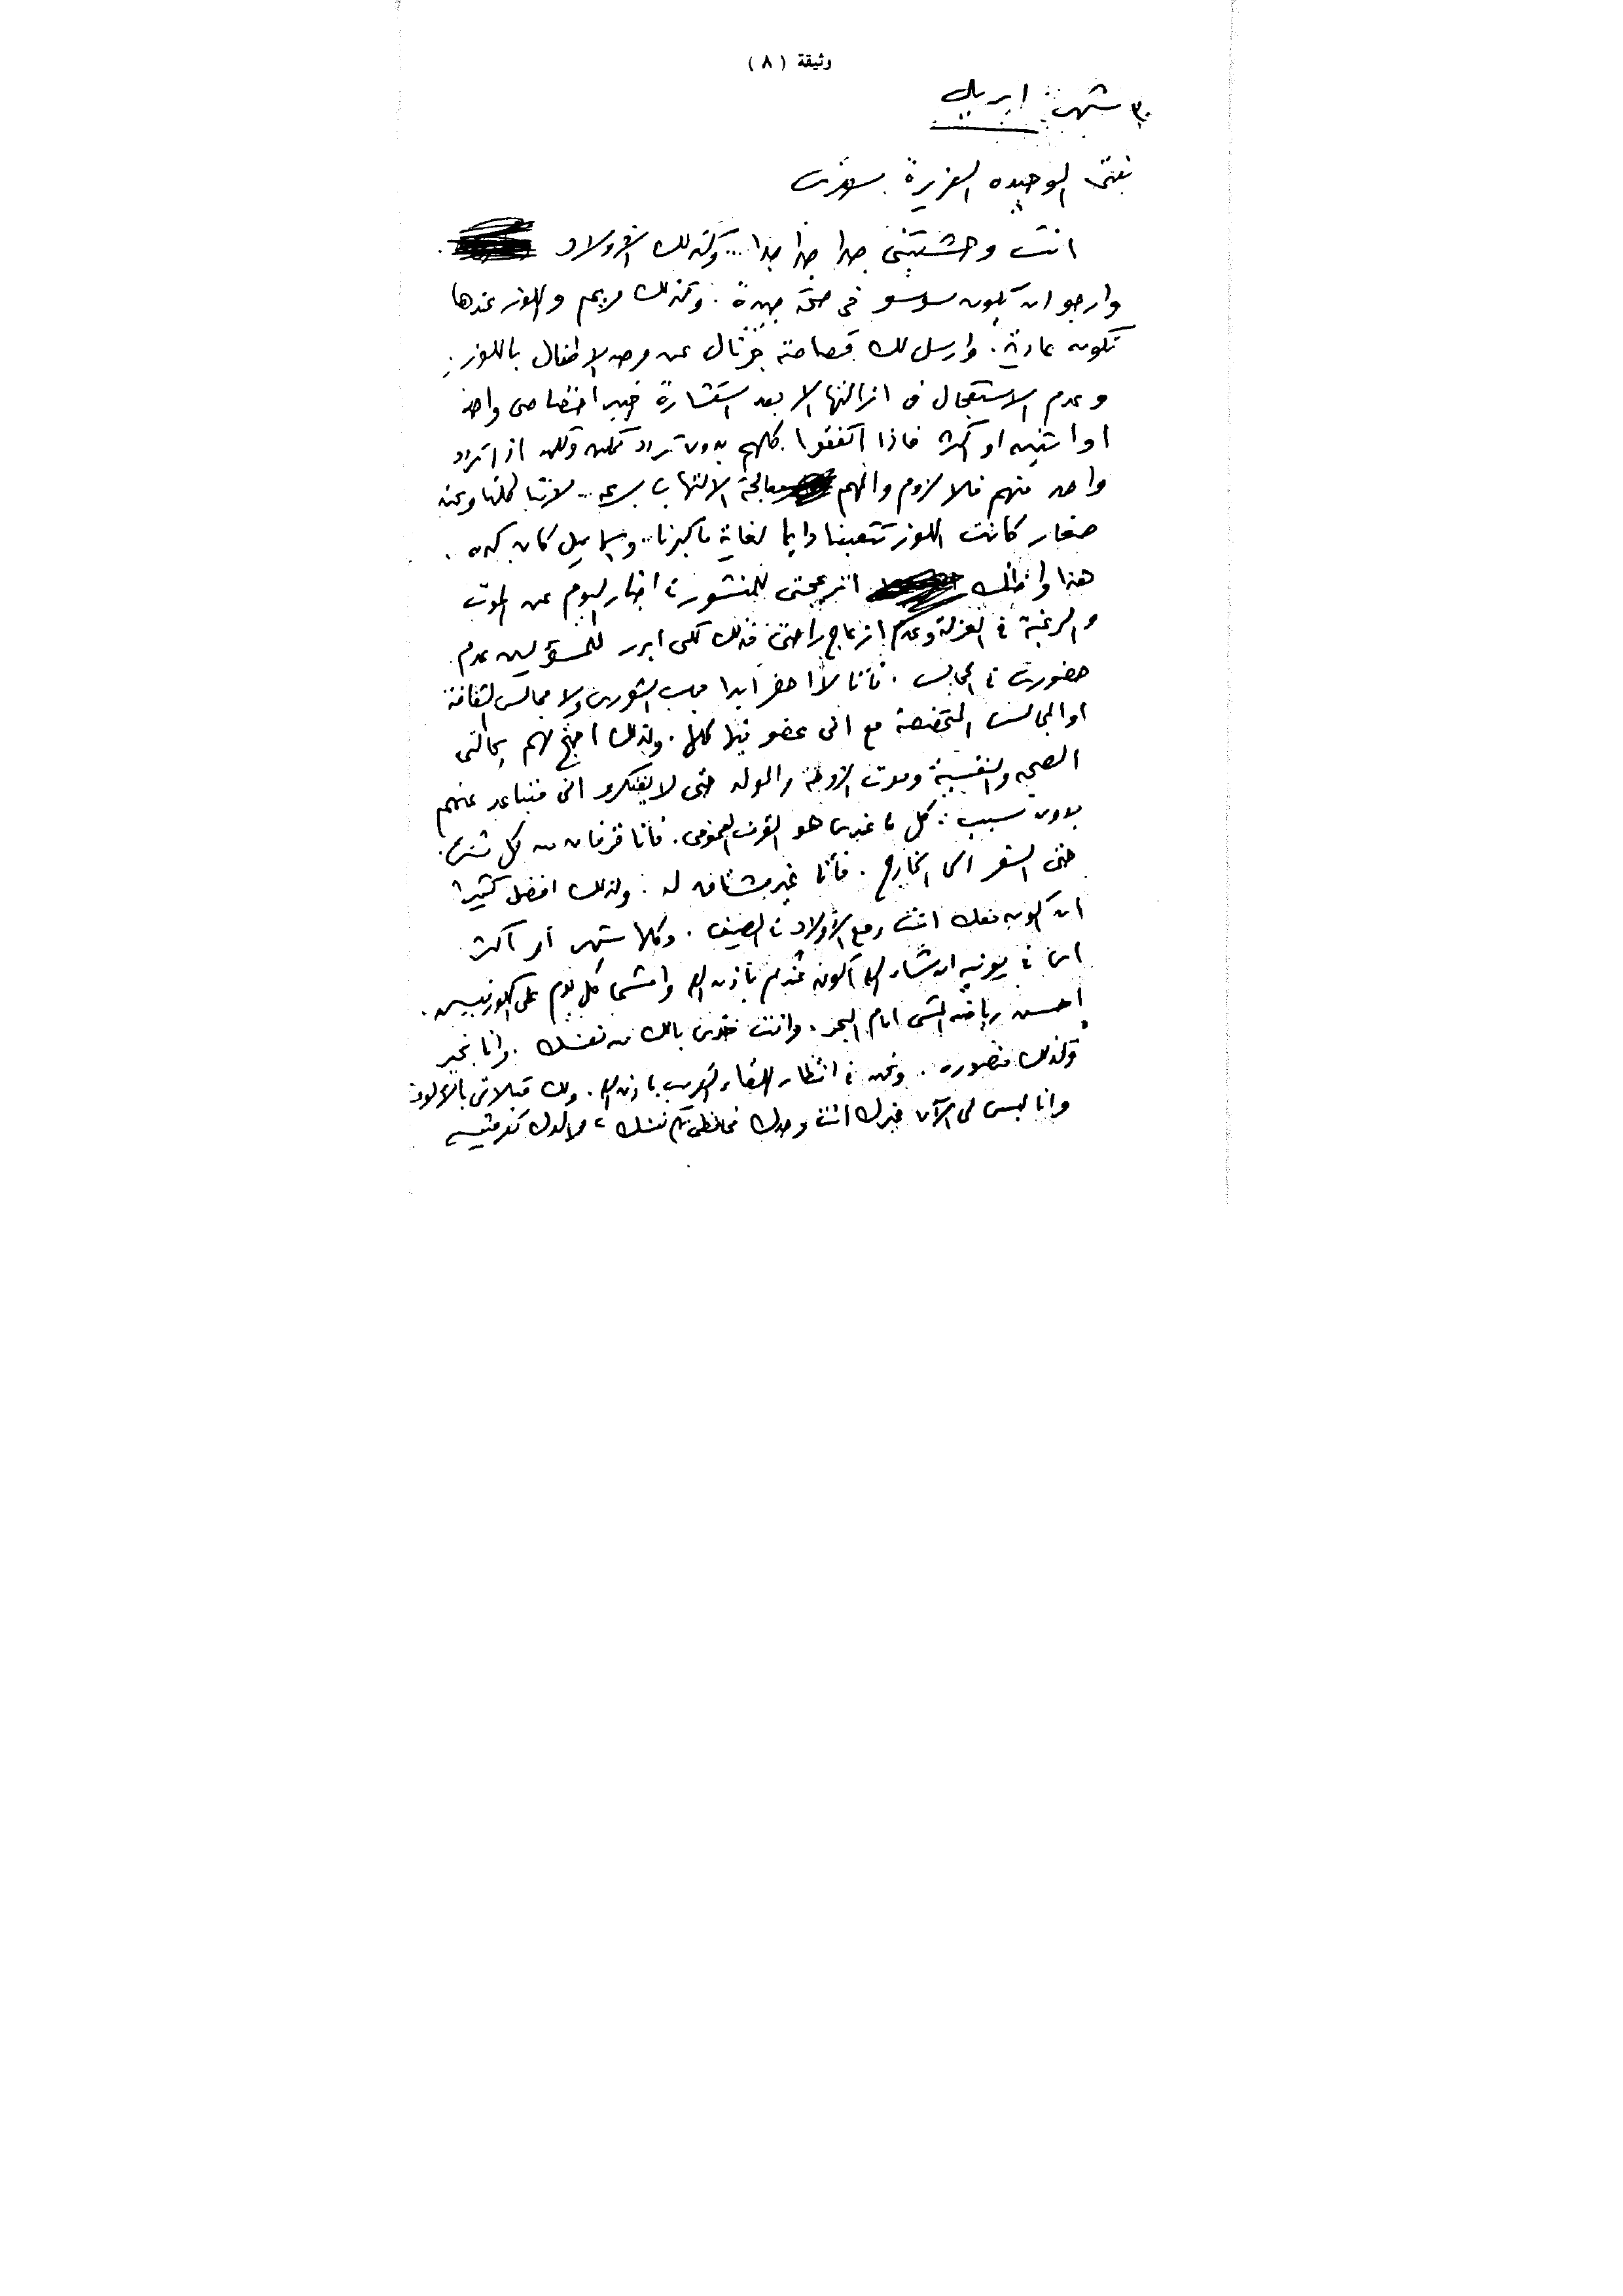 وثيقة (٨)
٣٠ شهر ابريل
بنتى الوحيده العزيزة
انت وحشتينى جدا جدا جدا ... وكذلك الأولاد
وارجو ان يكون سوسو فى صحة جيدة . وكذلك مريم واللوز عندها
تكون عادية . وارسل لك قصاصة جرنال عن مرض الاطفال باللوز .
وعدم الاستعجال فى ازالتها الا بعد استشارة خبير اخصاصى واحد
او اتنين او اكثر فاذا اتفقوا كلهم بدون تردد ممكن ولكن اذا تردد
واحد منهم فلا لزوم والمهم معالجة الالتهاب بسرعة .. لاننا كلنا ونحن
صغار كانت اللوز تتعبنا دايما لغاية ما كبرنا .. واسماعيل كان كده .
هذا ولا انزعجتى للمنشور فى اخبار اليوم عن الموت
والرغبة فى العزلة وعدم ازعاج راحتى فذلك لكى ابرر للمسؤلين عدم
حضورى فى المجالس . فأنا لا احضر ابدا مجلس الشورى ولا مجالس الثقافة
او المجالس المتخصصة مع انى عضو فيها كلها . ولذلك احتج لهم بحالتى
الصحية والنفسية وموت الزوجة والولد حتى لا يفتكروا انى متباعد عنهم
بدون سبب : كل ما عندى هو القرف العمومى . فانا قرفان من كل شئ .
حتى السفر الى الخارج . فأنا غير مشتاق له . ولذلك افضل كثيرا
ان اكون معك انت ومع الأولاد فى الصيف . وكلها شهر أو أكثر
اى فى يونيه ان شاء الله اكون عندكم باذن الله وامشى كل يوم على الكورنيش .
احسن رياضه المشى امام البحر . وانت خدى بالك من نفسك . وانا بخير
وكذلك منصوره . ونحن فى انتظار اللقاء القريب باذن الله . ولك قبلاتى بالألوف
وانا ليس لى الآن غيرك انت وحدك فحافظى على نفسك ، والدك